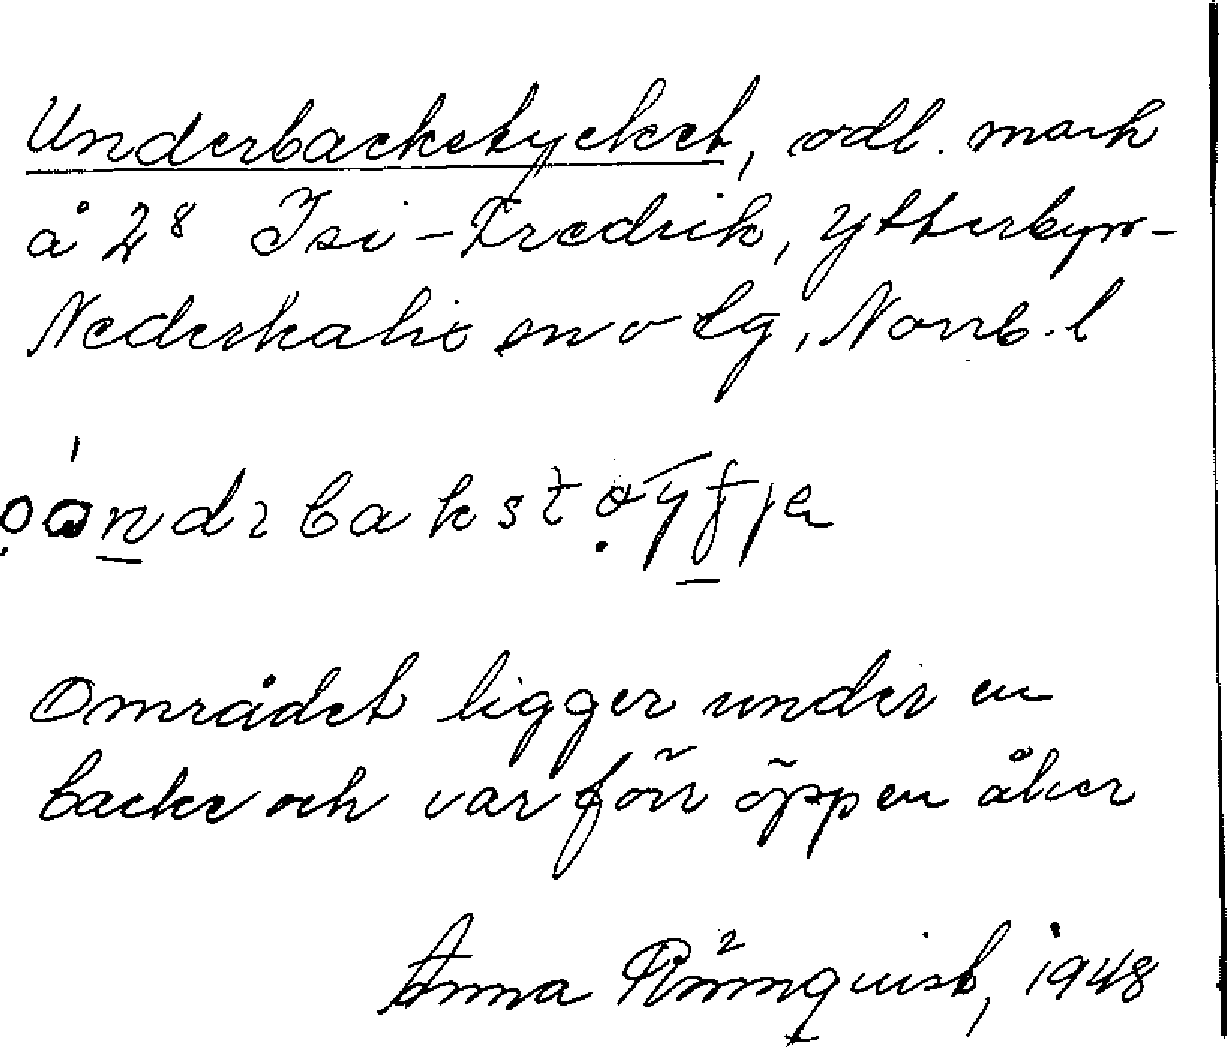 Underbackstycket, odl. mark
å 2⁸ Isi-Fredrik, Ytterbyn-
Nederkalix sn o tg, Norrb. l
Området ligger under en
backe och var förr öppen åker
Anna Rönnquist, 1948